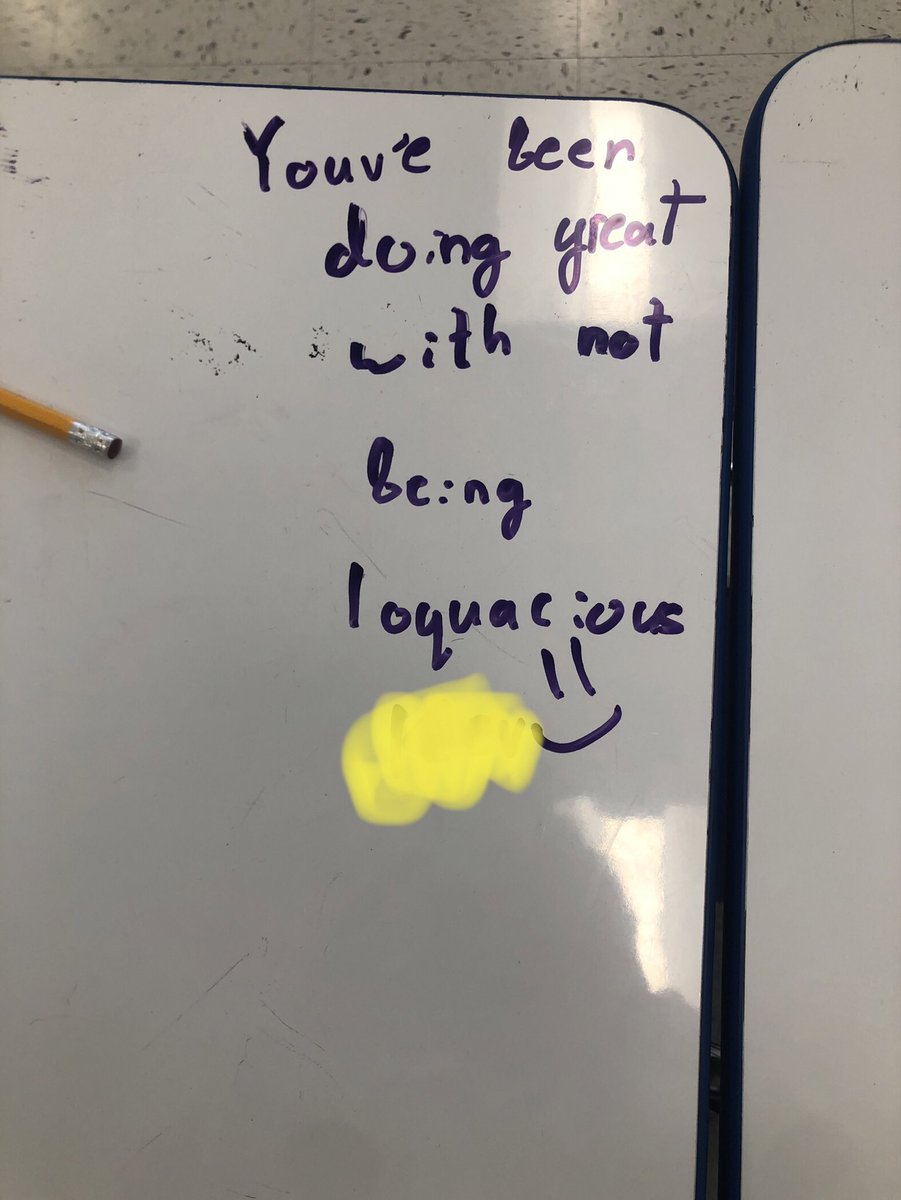 Youv'e been
doing great
with not
being
loquacious